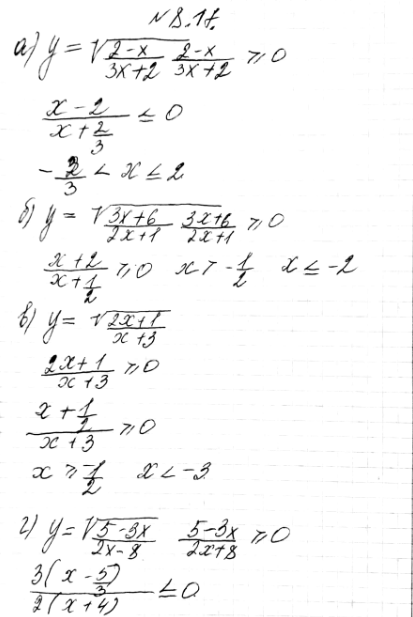 №8.17.
а) y = √((2-x)/(3x+2)) (2-x)/(3x+2) ≥ 0
(x-2)/(x+2/3) ≤ 0
-2/3 < x ≤ 2
б) y = √((3x+6)/(2x+1)) (3x+6)/(2x+1) ≥ 0
(x+2)/(x+1/2) ≥ 0 x > -1/2 x ≤ -2
в) y = √((2x+1)/(x+3))
(2x+1)/(x+3) ≥ 0
(x+1/2)/(x+3) ≥ 0
x ≥ -1/2 x < -3
г) y = √((5-3x)/(2x-8)) (5-3x)/(2x+8) ≥ 0
3(x-5/3)/2(x+4) ≤ 0